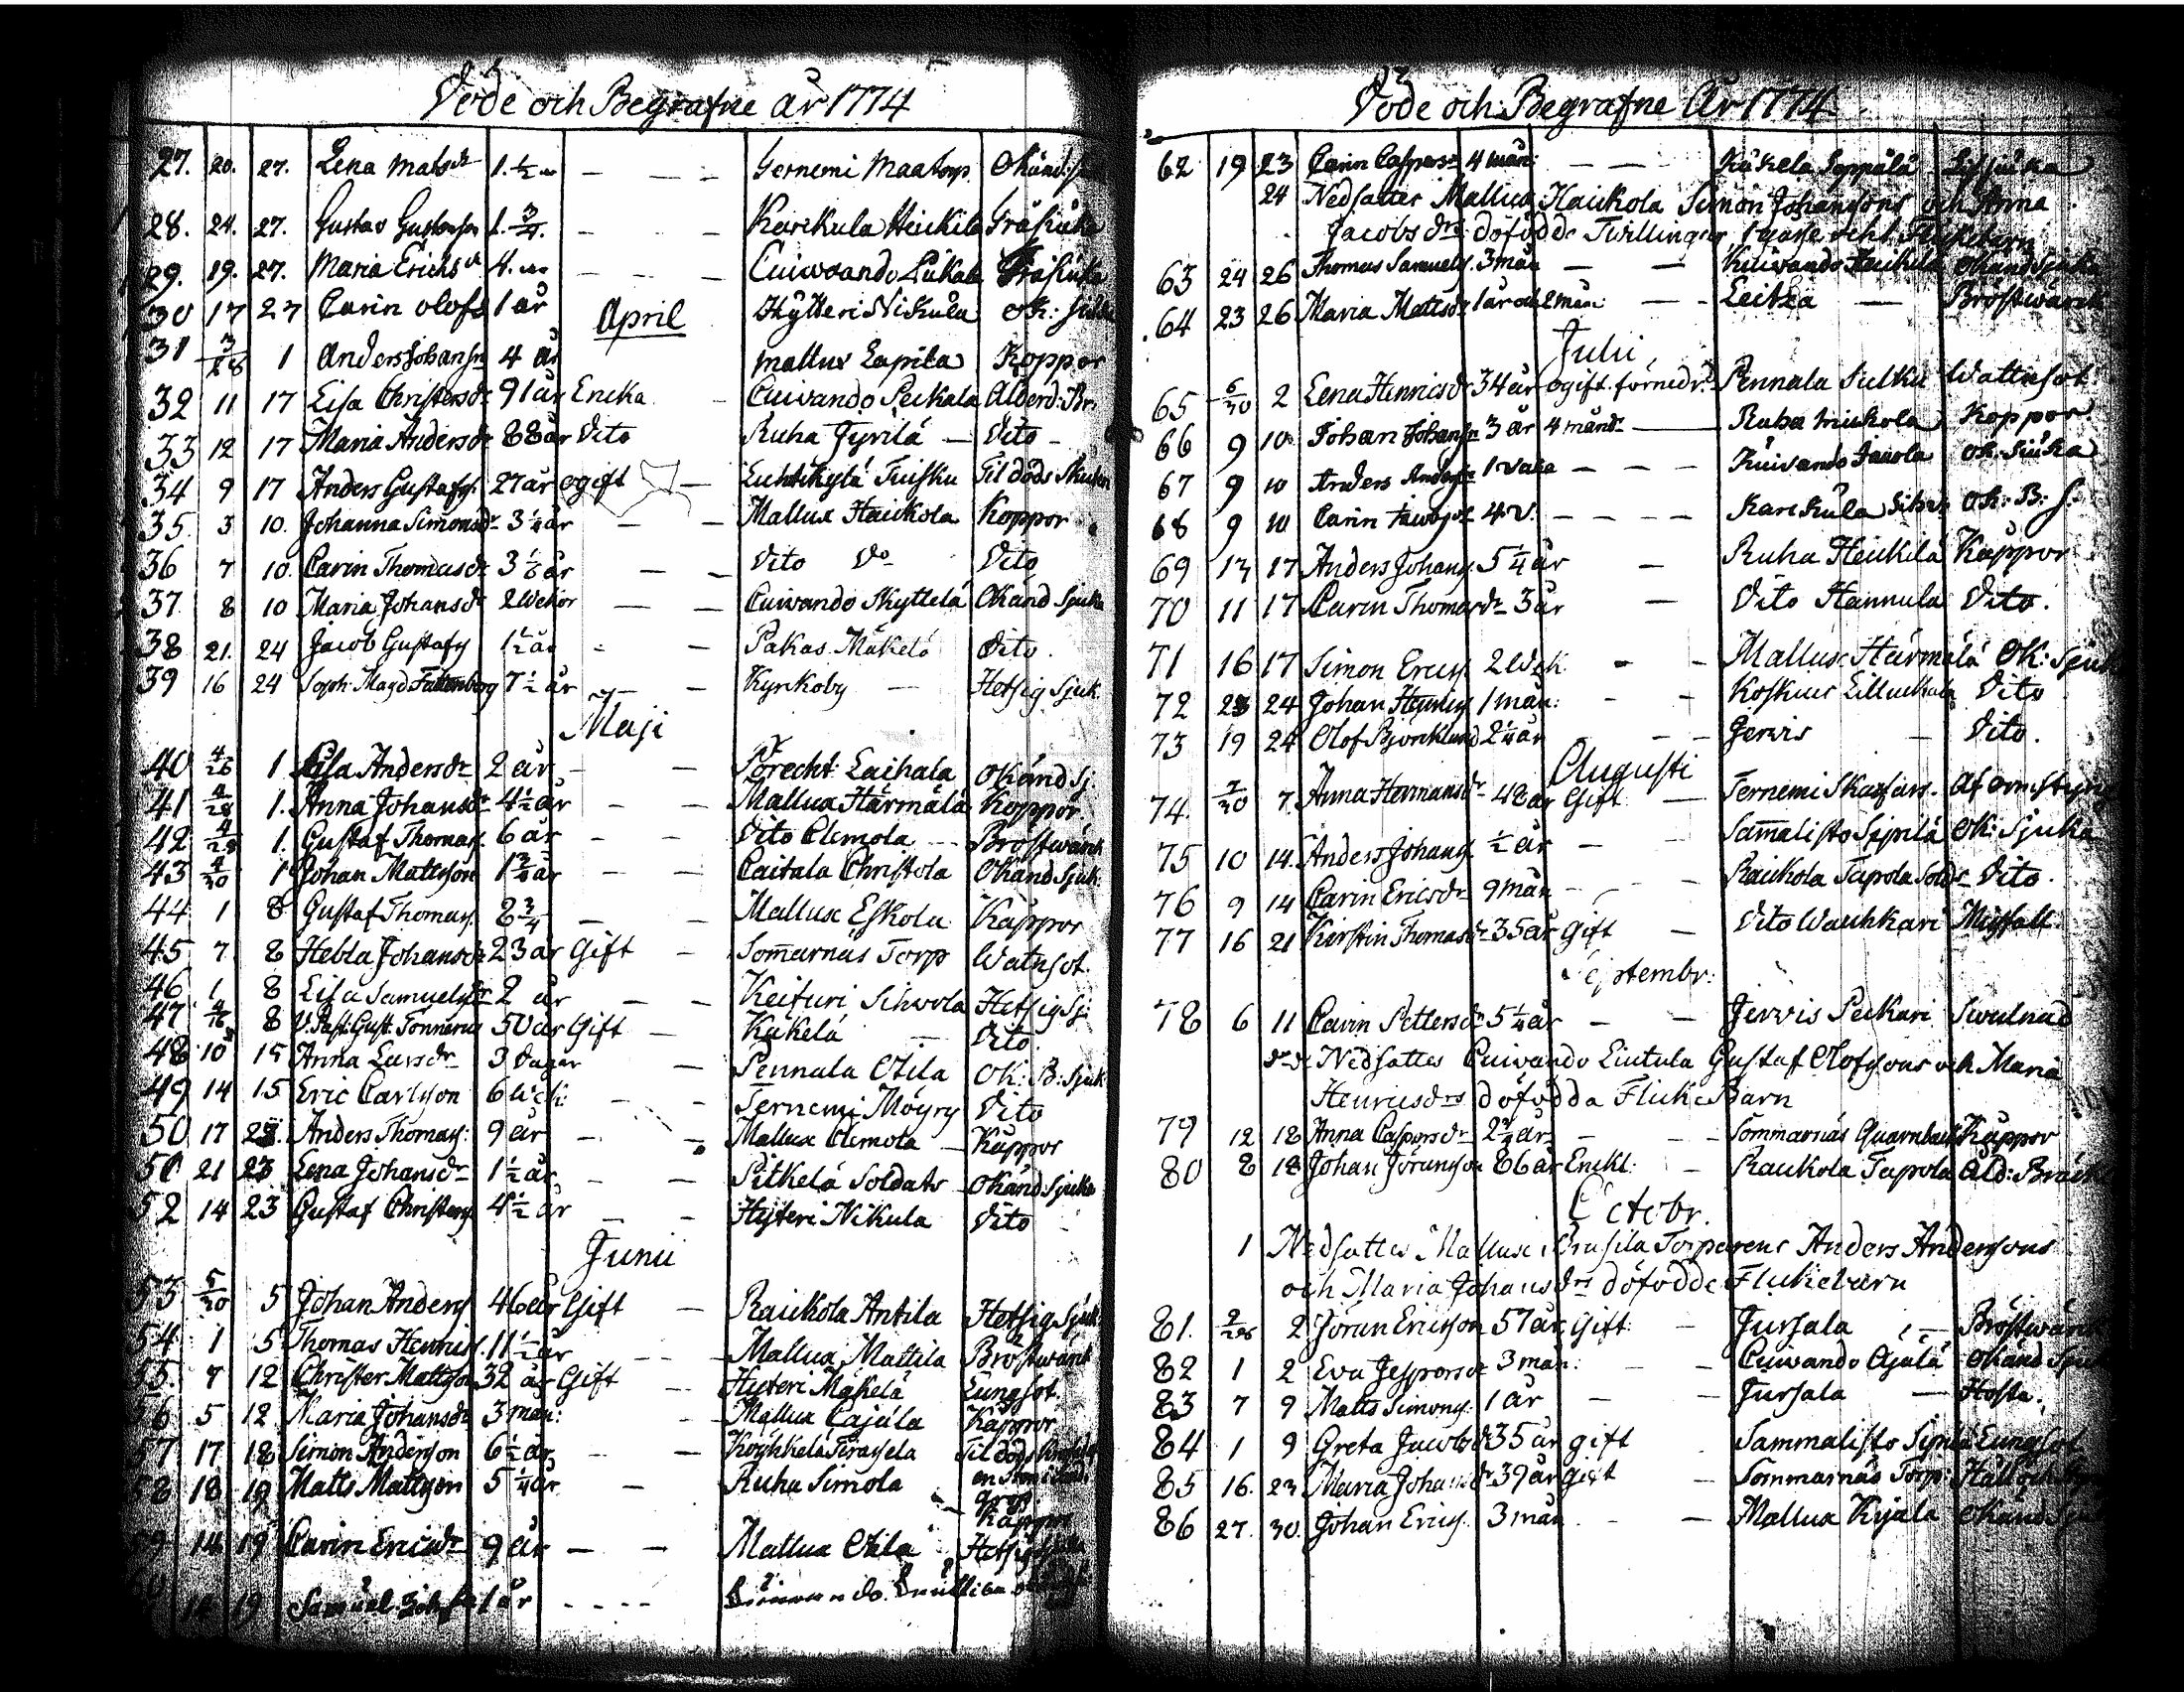 Döde och Begrafne år 1774
27. 20. 27. Lena Matsdr 1.½ - - - Gernemi Maatorp Okänd
28. 24. 27. Gustav Gustavson 1.¾. - - - Karikula Heickilä Fråsiuka
29. 19. 27. Maria Erichsdr 4. - - - Cuiwando Fråsiuka
30 17 27 Carin Olofs 1 år Hytteri Nikula ok: siuka
April
31 3/28 1 Anders Johansn 4 år Mallux Lapila Koppor
32 11 17 Lisa Christersdr 91 år Encka - Cuivando Peckala Ålderd: Br:
33 12 17 Maria Andersdr 88 år Dito Ruha Jyrilä - Dito -
34 9 17 Anders Gustafs. 27 år ogift - Luhtikylä Tuisku Til döds Skuten
35. 3 10. Johanna Simonsdr 3¼ år - - Mallux Haickola Koppor
36 7 10. Carin Thomasdr 3 år - - Dito Do Dito
37. 8 10 Maria Johansdr 2 Wekor - - Cuivando Skyttelä Okänd Sjuka
38 21. 24 Jacob Gustafs 1½ år - - Pakas Mäkelä Dito.
39 16 24 Soph: Magd Faltenberg 7½ år - - Kyrckoby - Hetsig Sjuk.
Maji
40 4/26 1 Lisa Andersdr 2 år - - Porecht Laihala okänd Sj:
41 4/28 1. Anna Johansdr 4½ år - - Mallux Härmälä Koppor.
42 4/29 1. Gustaf Thomas. 6 år - - Dito Clemola - Bröstwärck
43 4/30 1 Johan Mattsson 1¾ år - - Caitala Christola Okänd Sjuk:
44 1 8 Gustaf Thomas. 8¾ - - Mallux Eskola Käppor
45 7 8 Hebla Johansdr 23 år Gift - Som̄arnäs Torp Watnsot.
46 1 8 Lisa Samuelsdr 2 år - - Keituri Sihwola Hetsig Sj:
47 4/16 8 V. Past: Gust. Tonnerus 50 år Gift - Käkelä - Dito.
48 10 15 Anna Larsdr 3 dagar - Pennala Ottila Ok: B: Sjuk:
49 14 15 Eric Carlsson 6 Wek: - - Jernemi Möyry Dito
50 17 23. Anders Thomas: 9 år - - Mallux Clemola - Käppor
51 21 23 Lena Johansdr 1½ år - - Pitkelä Soldats - Okänd Sjuka
52 14 23 Gustaf Christers 4½ år - - Hyteri Nikula Dito
Junii
53 5/30 5 Johan Anders 46 år Gift - Raickola Antila Hetsig Sjuk
54 1 5 Thomas Henrics. 11½ år - - Mallux Mattila Bröstwärk
55. 7 12 Christer Mattson 32 år Gift - Hyteri Mäkelä Lungsot
56 5 12 Maria Johansdr 3 mån: - Mallux Cajala Käppor
57 17 18 Simon Anderson 6½ år - - Til döds
58 18 19 Matts Mattson 5¼ år - Ruha Simola Käppor
59 14 19 Carin Ericsdr 9 år - - Mallux Ottila Hetsig
14 19 Samuel 1 år - - - -
Döde och Begrafne År 1774
62 19 23 Carin Caspersdr 4 mån: - - Käkela Seppälä
24 Nedsattes Mallux Haikola Simon Johansons och Anna
Jacobsdrs döfödde Twillingar 1 gåsse och 1 Flickebarn
63 24 26 Thomas Samuels. 3 mån - - Kuiwando Heickilä okänd Sjuka
64 23 26 Maria Mattsdr 1 år och 2 mån: - - Leitza - Bröstwärck
Julii
65 6/30 2 Lena Henricsdr 34 år ogift. förnedr: Pennala Sulku Wattnsot
66 9 10. Johan Johansn 3 år 4 månd - Ruha Mickola Koppor
67 9 10 Anders Anders 1 vecka - - - Kuivando Jaκola ok: Siuka
68 9 10 Carin Jacobsdr 4 v. - - - - Karikula ok: B: S:
69 13 17 Anders Johans. 5¼ år - Ruha Heickilä Käppor
70 11 17 Carin Thomasdr 3 år - Dito Hannula Dito.
71 16 17 Simon Erics 2 Wek - - Mallux Härmälä Ok: Sjuk
72 23 24 Johan Henrics 1 mån: - - Koskus Dito
73 19 24 Olof Björcklund 2¼ år - - Jervis - Dito.
Augusti
74. 7/30 7. Anna Hermansdr 48 år Gift - Jernemi
75 10 14. Anders Johans ½ år - - Sam̄alisto Sipilä Ok: Sjuka
76 9 14 Carin Ericsdr 9 mån - - Raickola Tapola Solds Dito.
77 16 21 Kirstin Thomasdr 35 år gift - Dito Wauhkari Missfall
Septembr:
78 6 11 Carin Pettersdr 5¼ år - - Jervis Peckari Swulnad
Nedsattes Cuivando Liutula Gustaf Olofsons och Maria
Henricsdrs döfödda Flicke Barn
79 12 18 Anna Caspersdr 2¾ år - - Sommarnäs Quarnback Käppor
80 8 18 Johan Jöransson 86 år Enckl: - Raickola Tapola Åld: Bräck
Octobr.
1 Nedsattes Mallux Torparens Anders Andersons
och Maria Johansdrs döfödde Flickebarn
81. 9/26 2 Jöran Ericsson 57 år Gift: - Jursala - Bröstwärck
82 1 2 Eva Jespersdr 3 mån: - - Cuivando Ajälä okänd Sjuk
83 7 9 Matts Simons. 1 år - - Jursala - Hosta.
84 1 9 Greta Jacobsdr 35 år gift Sammalisto Lungsot
85 16. 23 Maria Johansdr 39 år gift - Sommarnäs Torp: Håll och
86 27. 30. Johan Erics. 3 mån - - Mallux Kyälä okänd Sju